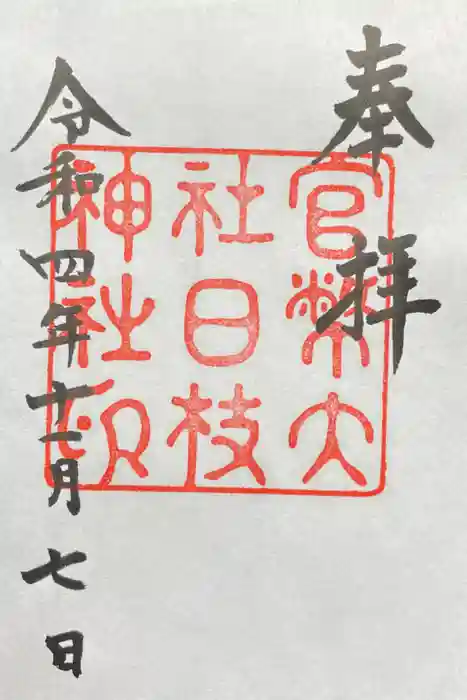 奉拝
官幣大
社日枝
神社印
令和四年十一月七日